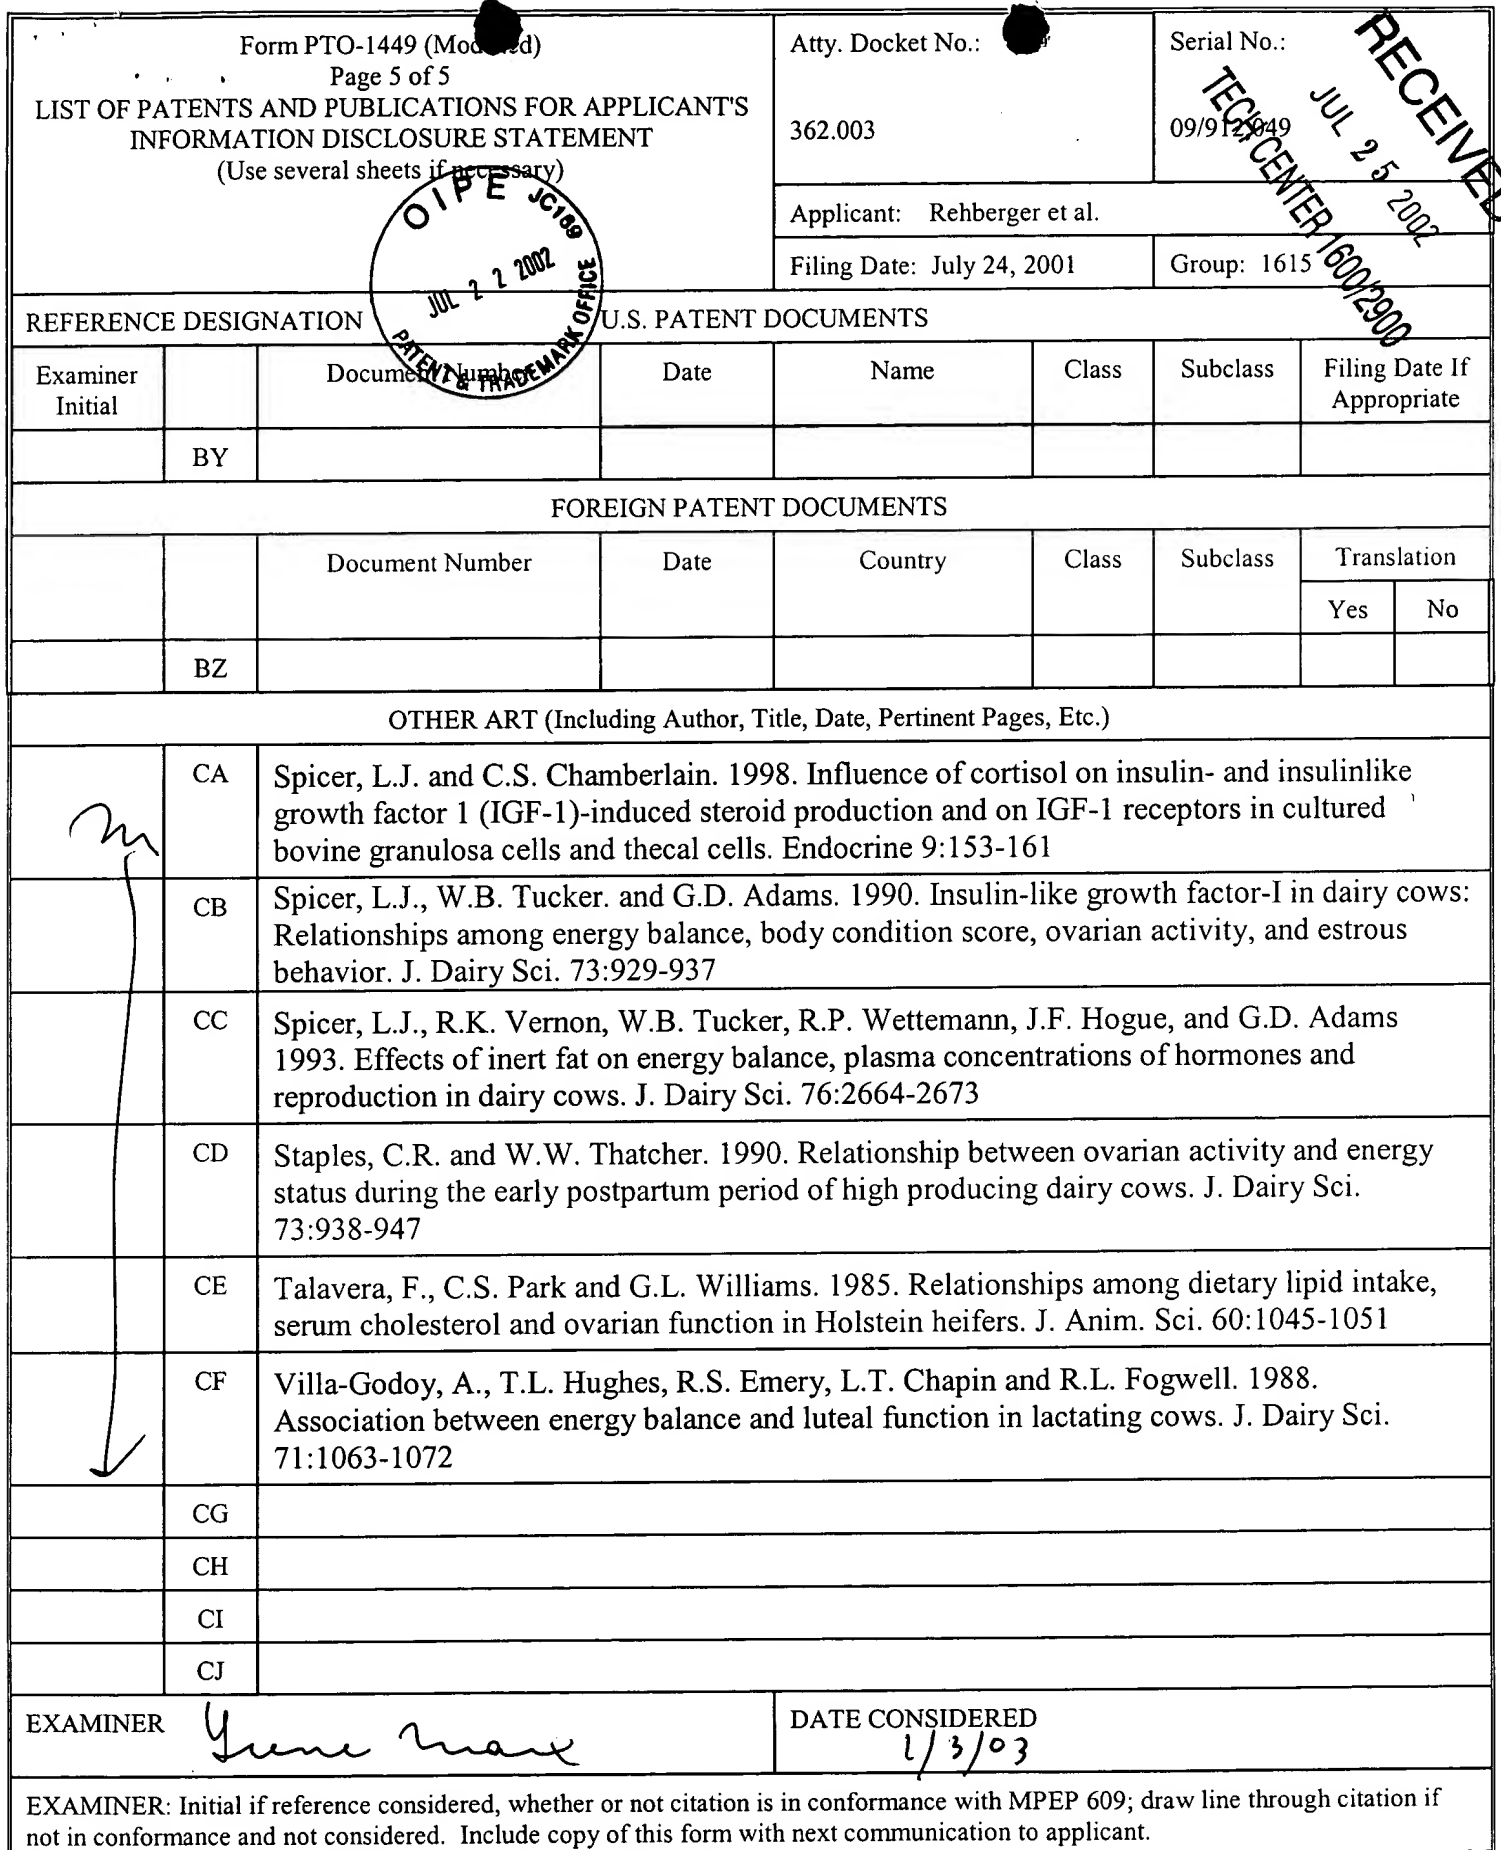 Form PTO-1449 (Mod    d)
Page 5 of 5
LIST OF PATENTS AND PUBLICATIONS FOR APPLICANT'S
INFORMATION DISCLOSURE STATEMENT
(Use several sheets if necessary)
Atty. Docket No.:
362.003
Serial No.:
09/912,049
RECEIVED
JUL 25 2002
TECH CENTER 1600/2900
Applicant: Rehberger et al.
Filing Date: July 24, 2001
Group: 1615
OIPE JC169
JUL 22 2002
PATENT & TRADEMARK OFFICE
REFERENCE DESIGNATION U.S. PATENT DOCUMENTS
Examiner Initial Document Number Date Name Class Subclass Filing Date If Appropriate
BY
FOREIGN PATENT DOCUMENTS
Document Number Date Country Class Subclass Translation
Yes No
BZ
OTHER ART (Including Author, Title, Date, Pertinent Pages, Etc.)
CA Spicer, L.J. and C.S. Chamberlain. 1998. Influence of cortisol on insulin- and insulinlike
growth factor 1 (IGF-1)-induced steroid production and on IGF-1 receptors in cultured
bovine granulosa cells and thecal cells. Endocrine 9:153-161
CB Spicer, L.J., W.B. Tucker. and G.D. Adams. 1990. Insulin-like growth factor-I in dairy cows:
Relationships among energy balance, body condition score, ovarian activity, and estrous
behavior. J. Dairy Sci. 73:929-937
CC Spicer, L.J., R.K. Vernon, W.B. Tucker, R.P. Wettemann, J.F. Hogue, and G.D. Adams
1993. Effects of inert fat on energy balance, plasma concentrations of hormones and
reproduction in dairy cows. J. Dairy Sci. 76:2664-2673
CD Staples, C.R. and W.W. Thatcher. 1990. Relationship between ovarian activity and energy
status during the early postpartum period of high producing dairy cows. J. Dairy Sci.
73:938-947
CE Talavera, F., C.S. Park and G.L. Williams. 1985. Relationships among dietary lipid intake,
serum cholesterol and ovarian function in Holstein heifers. J. Anim. Sci. 60:1045-1051
CF Villa-Godoy, A., T.L. Hughes, R.S. Emery, L.T. Chapin and R.L. Fogwell. 1988.
Association between energy balance and luteal function in lactating cows. J. Dairy Sci.
71:1063-1072
CG
CH
CI
CJ
EXAMINER
DATE CONSIDERED
1/3/03
EXAMINER: Initial if reference considered, whether or not citation is in conformance with MPEP 609; draw line through citation if
not in conformance and not considered. Include copy of this form with next communication to applicant.